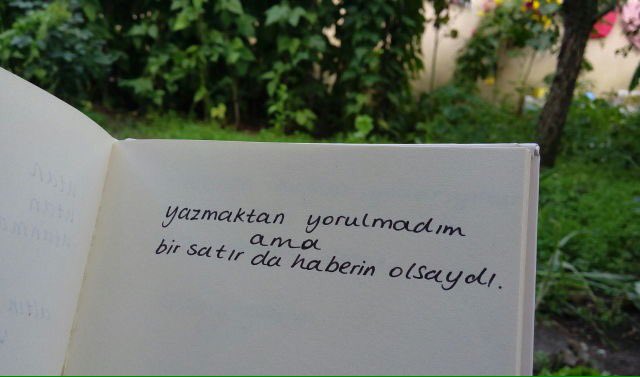 yazmaktan yorulmadım
ama
bir satır da haberin olsaydı.